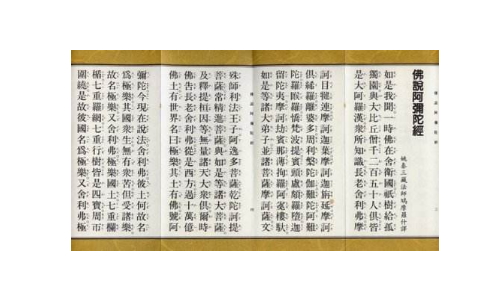 佛說阿彌陀經
姚秦三藏法師鳩摩羅什譯
如是我聞一時佛在舍衛國祇樹給孤
獨園與大比丘僧千二百五十人俱皆
是大阿羅漢眾所知識長老舍利弗摩
訶目犍連摩訶迦葉摩訶迦旃延摩訶
俱絺羅離婆多周利槃陀伽難陀阿難
陀羅睺羅憍梵波提賓頭盧頗羅墮迦
留陀夷摩訶劫賓那薄拘羅阿㝹樓馱
如是等諸大弟子並諸菩薩摩訶薩文
殊師利法王子阿逸多菩薩乾陀訶提
菩薩常精進菩薩與如是等諸大菩薩
及釋提桓因等無量諸天大眾俱爾時
佛告長老舍利弗從是西方過十萬億
佛土有世界名曰極樂其土有佛號阿
彌陀今現在說法舍利弗彼土何故名
為極樂其國眾生無有眾苦但受諸樂
故名極樂又舍利弗極樂國土七重欄
楯七重羅網七重行樹皆是四寶周帀
圍繞是故彼國名為極樂又舍利弗極